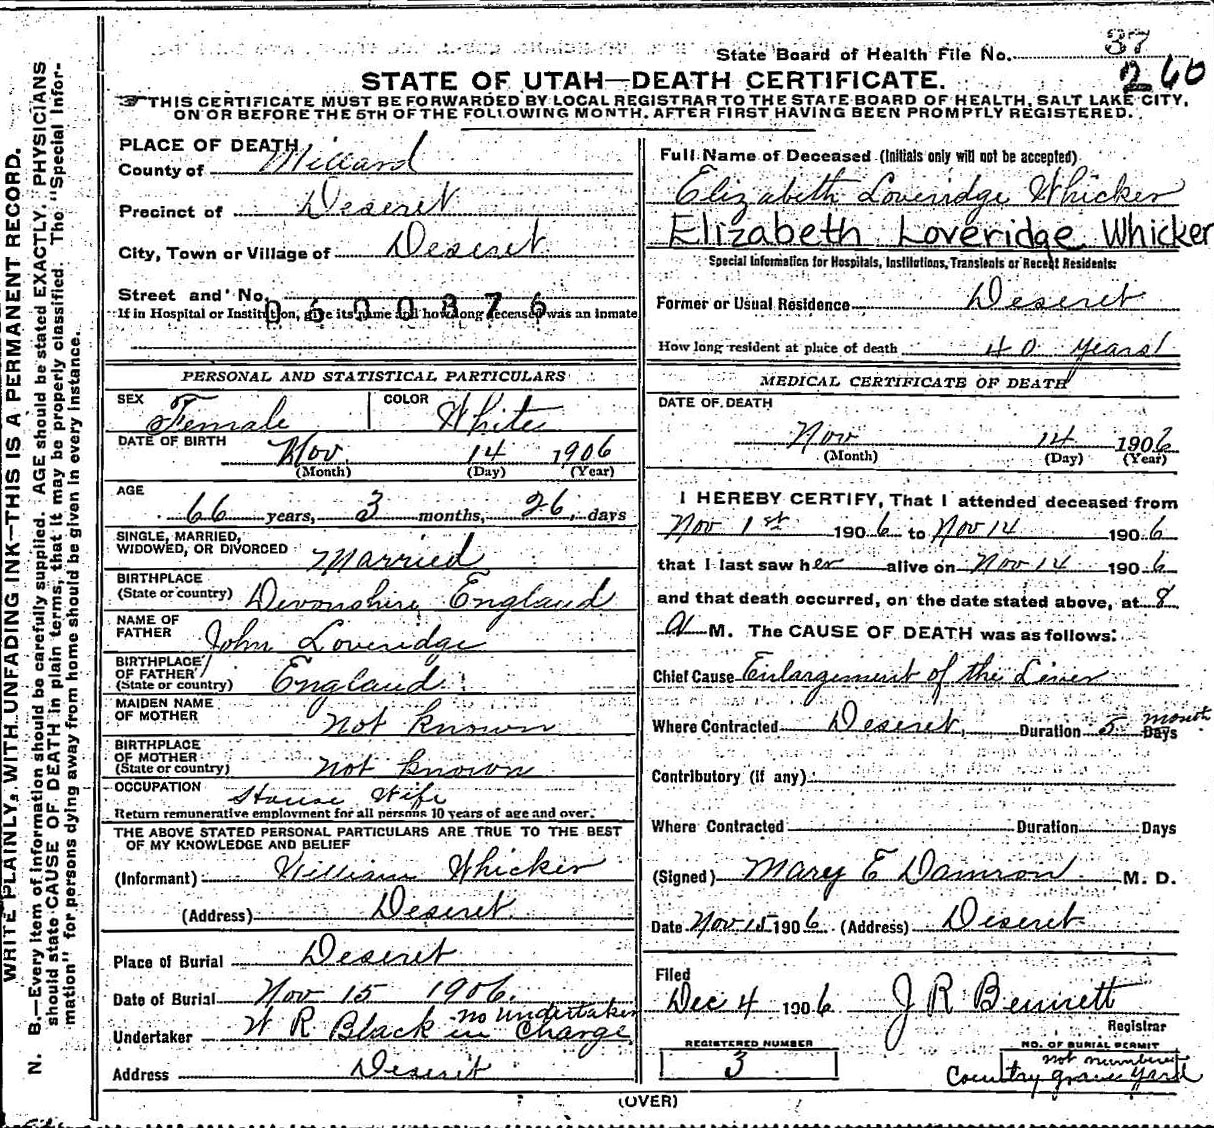 WRITE PLAINLY, WITH UNFADING INK—THIS IS A PERMANENT RECORD.
N. B.—Every item of information should be carefully supplied. AGE should be stated EXACTLY. PHYSICIANS
should state CAUSE OF DEATH in plain terms, that it may be properly classified. The "Special Infor-
mation" for persons dying away from home should be given in every instance.
State Board of Health File No. 37
260
STATE OF UTAH—DEATH CERTIFICATE.
THIS CERTIFICATE MUST BE FORWARDED BY LOCAL REGISTRAR TO THE STATE BOARD OF HEALTH, SALT LAKE CITY,
ON OR BEFORE THE 5TH OF THE FOLLOWING MONTH. AFTER FIRST HAVING BEEN PROMPTLY REGISTERED.
PLACE OF DEATH
County of Millard
Precinct of Deseret
City, Town or Village of Deseret
Street and No.
0600876
If in Hospital or Institution, give its name and how long deceased was an inmate
PERSONAL AND STATISTICAL PARTICULARS
SEX Female COLOR White
DATE OF BIRTH Nov 14 1906
(Month) (Day) (Year)
AGE 66 years, 3 months, 26 days
SINGLE, MARRIED,
WIDOWED, OR DIVORCED Married
BIRTHPLACE
(State or country) Devonshire England
NAME OF
FATHER John Loveridge
BIRTHPLACE
OF FATHER
(State or country) England
MAIDEN NAME
OF MOTHER Not known
BIRTHPLACE
OF MOTHER
(State or country) not known
OCCUPATION House Wife
Return remunerative employment for all persons 10 years of age and over.
THE ABOVE STATED PERSONAL PARTICULARS ARE TRUE TO THE BEST
OF MY KNOWLEDGE AND BELIEF
(Informant) William Whicker
(Address) Deseret
Place of Burial Deseret
Date of Burial Nov 15 1906.
Undertaker W R Black in Charge
no undertaker
Address Deseret
Full Name of Deceased (Initials only will not be accepted)
Elizabeth Loveridge Whicker
Elizabeth Loveridge Whicker
Special Information for Hospitals, Institutions, Transients or Recent Residents:
Former or Usual Residence Deseret
How long resident at place of death 40 years
MEDICAL CERTIFICATE OF DEATH
DATE OF DEATH
Nov 14 1906
(Month) (Day) (Year)
I HEREBY CERTIFY, That I attended deceased from
Nov 1st 1906 to Nov 14 1906
that I last saw her alive on Nov 14 1906
and that death occurred, on the date stated above, at 8
A M. The CAUSE OF DEATH was as follows:
Chief Cause Enlargement of the Liver
Where Contracted Deseret, Duration 5 month Days
Contributory (if any)
Where Contracted Duration Days
(Signed) Mary E Damron M. D.
Date Nov 15 1906 (Address) Deseret
Filed
Dec 4 1906 J R Bennett
Registrar
REGISTERED NUMBER
3
NO. OF BURIAL PERMIT
not numbered
Country grave yard
(OVER)